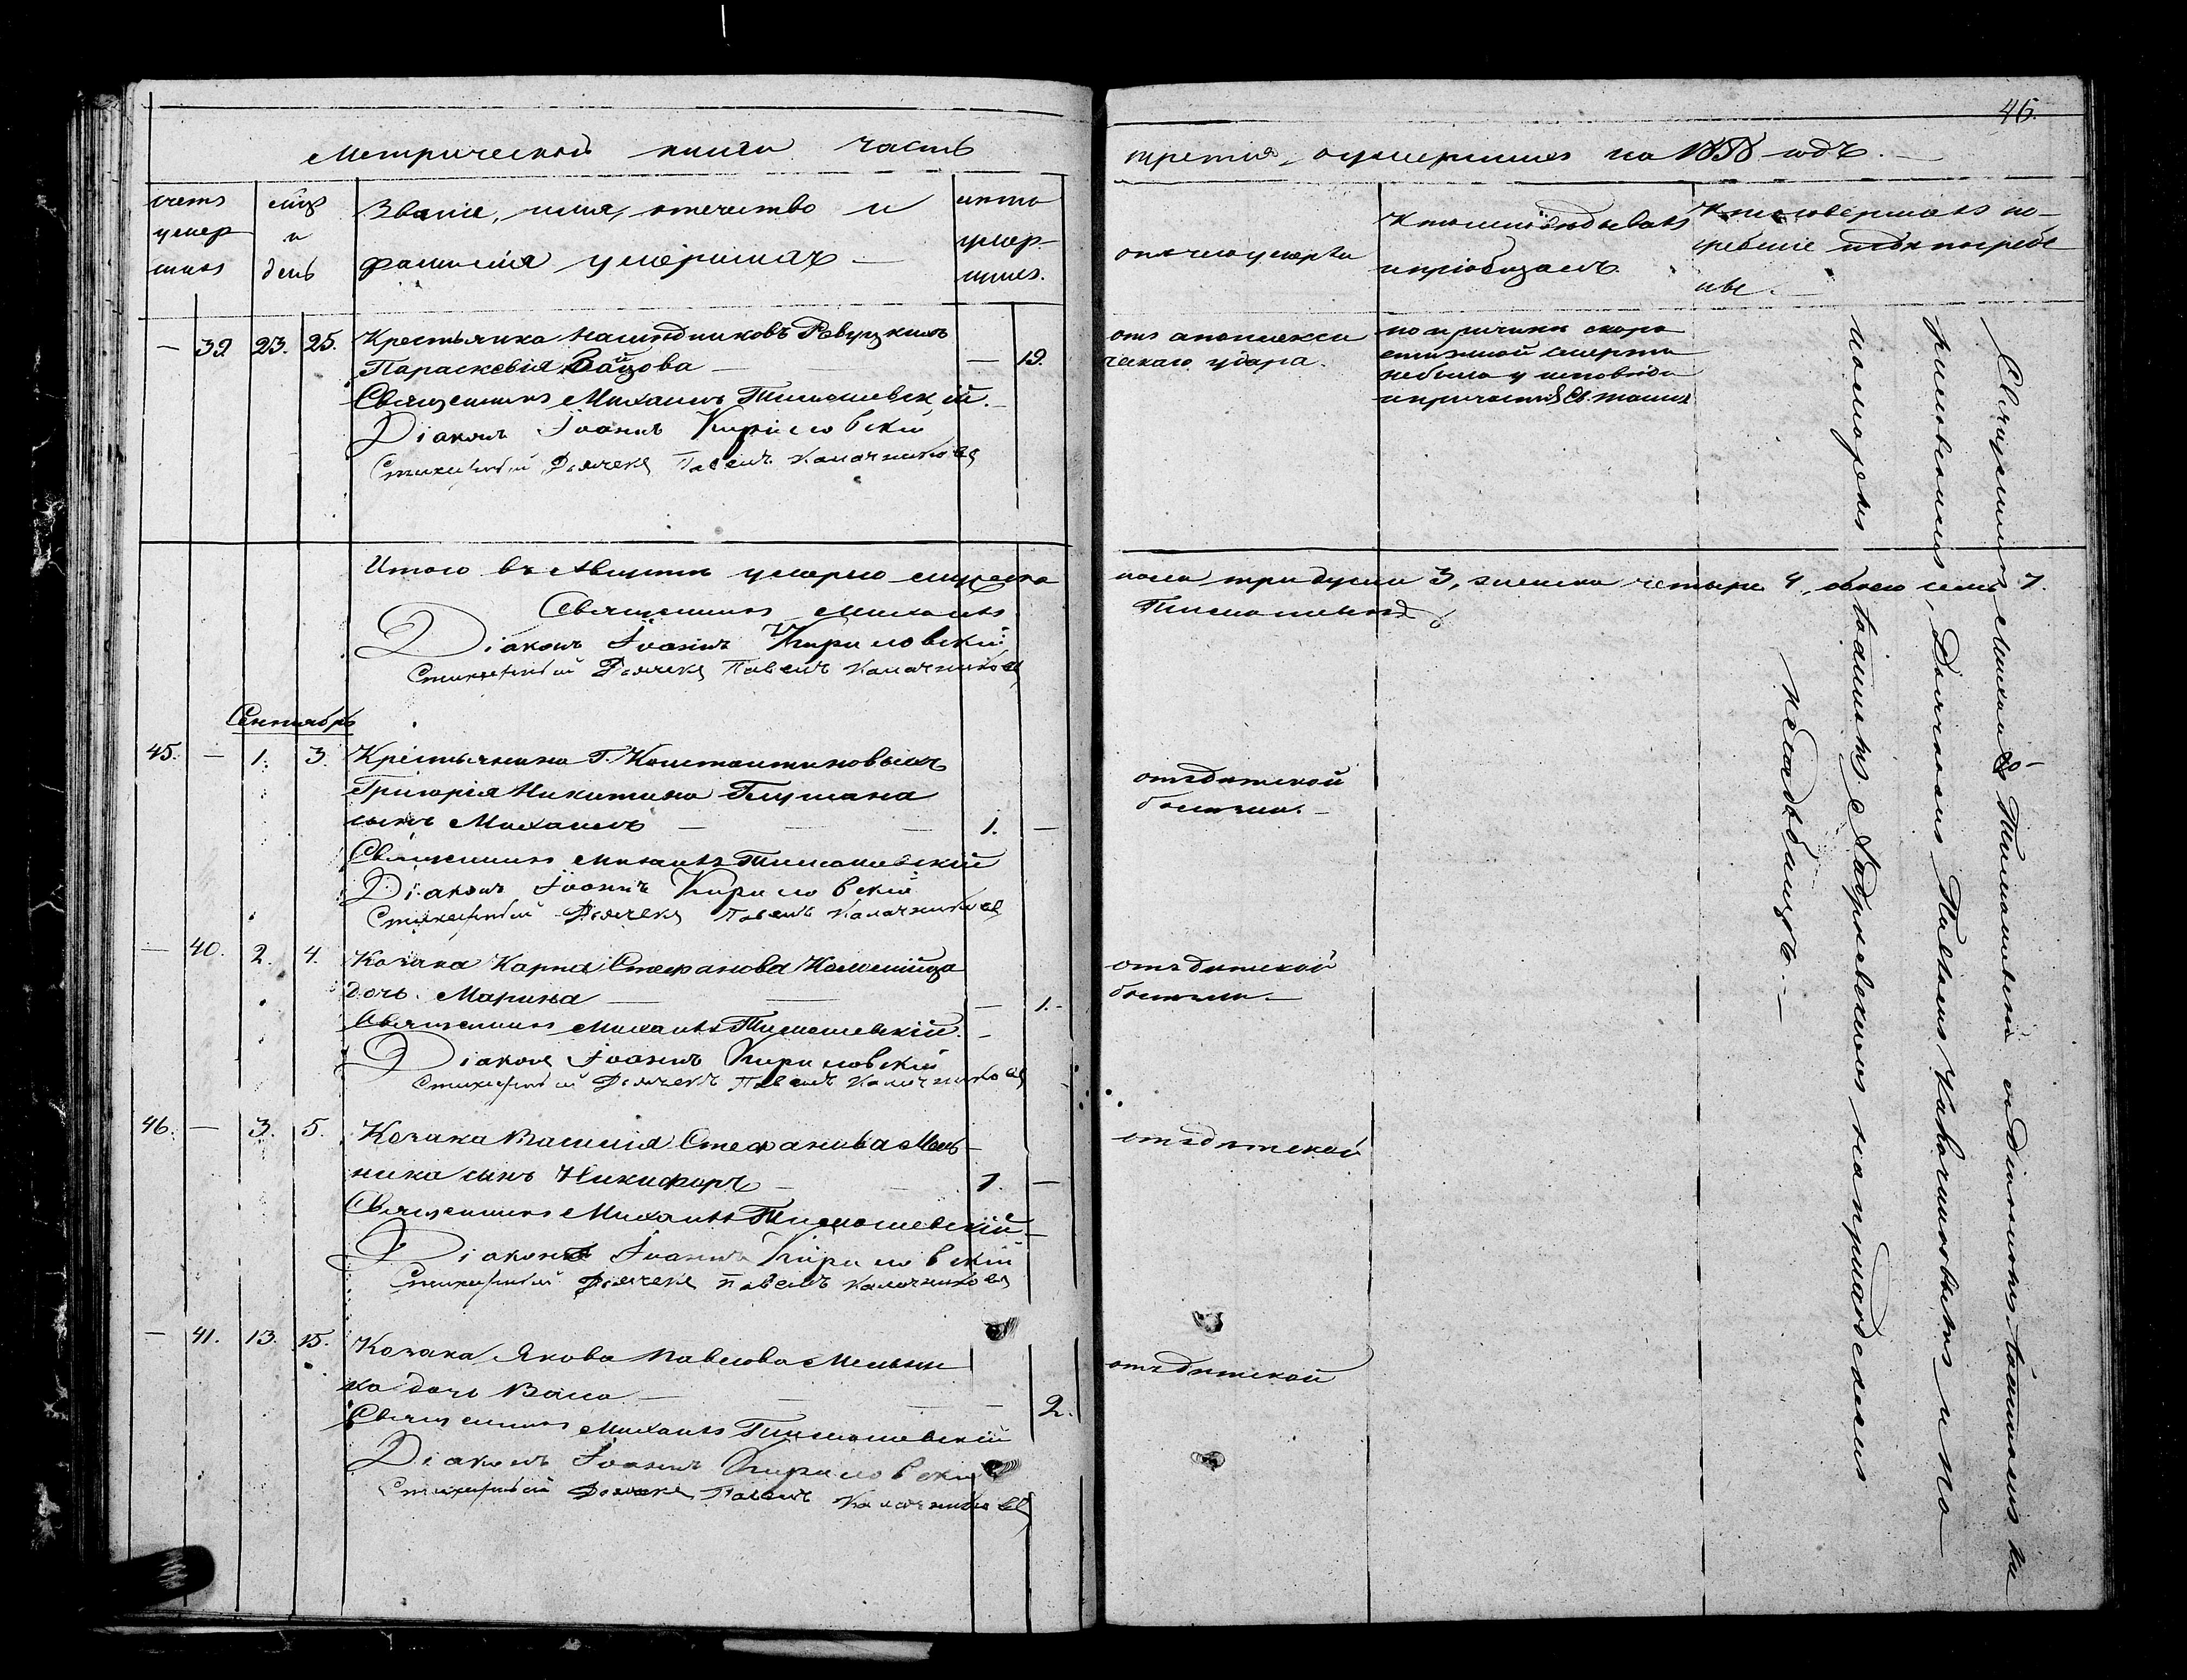 46.
Метрической книги часть
третия, о умершихъ на 1858 годъ.
счетъ умер-шихъ
мцъ и день
Званіе, имя, отчество и
фамилія умершихъ —
лета умер-шихъ.
отъ чего умерли
Кто исповедывалъ
и пріобщалъ.
Кто совершалъ по-
гребеніе и где погребе
ны.
— 39 23. 25. Крестьянка наследниковъ Равуцкихъ
Параскевія — 19.
Священникъ Михаилъ Тимошевскій.
Діаконъ Іоаннъ Кириловскій
Стихарный Дьячекъ Павелъ Калачниковъ
отъ апоплекси
ческаго удара.
по причине скоро
постижной смерти
небыла у исповеди
и причастія Св. таинъ
Итого въ Августе умерло мужеска
Священникъ Михаилъ
Діаконъ Іоаннъ Кириловскій
Стихарный Дьячекъ Павелъ Калачниковъ
пола три души 3, женска четыре 4, обоего семь 7.
Тимошевскій
Сентябрь
45. — 1. 3. Крестьянина Г. Константиновыхъ
Григорія Никитина
сынъ Михаилъ — 1. —
Священникъ Михаилъ Тимошевскій
Діаконъ Іоаннъ Кириловскій
Стихарный Дьячекъ Павелъ Калачниковъ
отъ детской
болезни. —
— 40. 2. 4. Козака Карпа Стефанова
дочь Марина — 1. —
Священникъ Михаилъ Тимошевскій. —
Діаконъ Іоаннъ Кириловскій
Стихарный Дьячекъ Павелъ Калачниковъ
отъ детской
болезни. —
46. — 3. 5. Козака Василія Стефанова Мель-
ника сынъ Никифоръ — 1. —
Священникъ Михаилъ Тимошевскій —
Діаконъ Іоаннъ Кириловскій
Стихарный Дьячекъ Павелъ Калачниковъ
отъ детской
— 41. 13. 15. Козака Якова Павлова Мельни
ка дочь Васса — 2.
Священникъ Михаилъ Тимошевскій
Діаконъ Іоаннъ Кириловскій
Стихарный Дьячекъ Павелъ Калачниковъ
отъ детской
Священникъ Михаилъ Тимошевскій съ Діакономъ Іоанномъ Ки
риловскимъ, Дьячкомъ Павломъ Калачниковымъ и По
номаремъ на приходскомъ
кладбище. —